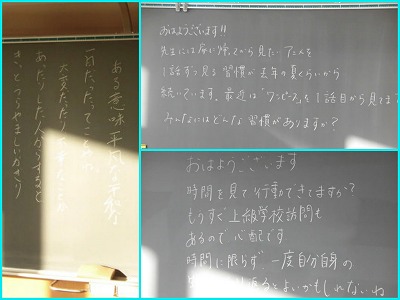 ある意味平凡な平和な
大変だったり
あったりした人からすると
きっとうらやましいかぎり
おはようございます!!
先生には家に帰ってから見たいアニメを
1話ずつ見る習慣が去年の夏くらいから
続いています。最近は「ワンピース」を1話目から見てます
みんなにはどんな習慣がありますか?
おはようございます
時間を見て行動できてますか?
もうすぐ上級学校訪問も
あるので心配です
時間に限らず、一度自分自身の
とよいかもしれないね